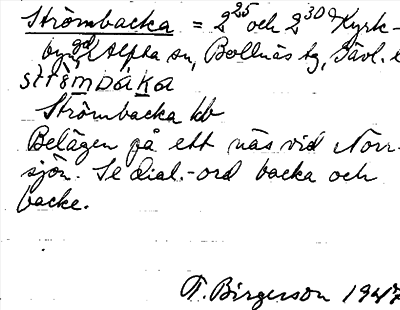 Strömbacka = 2²⁵ och 2³⁰ Kyrk-
byn, Alfta sn, Bollnäs tg, Gävl. l
strömbàka
Strömbacka kb
Belägen på ett näs vid Norr-
sjön. Se dial.-ord backa och
backe.
T. Birgerson 1947